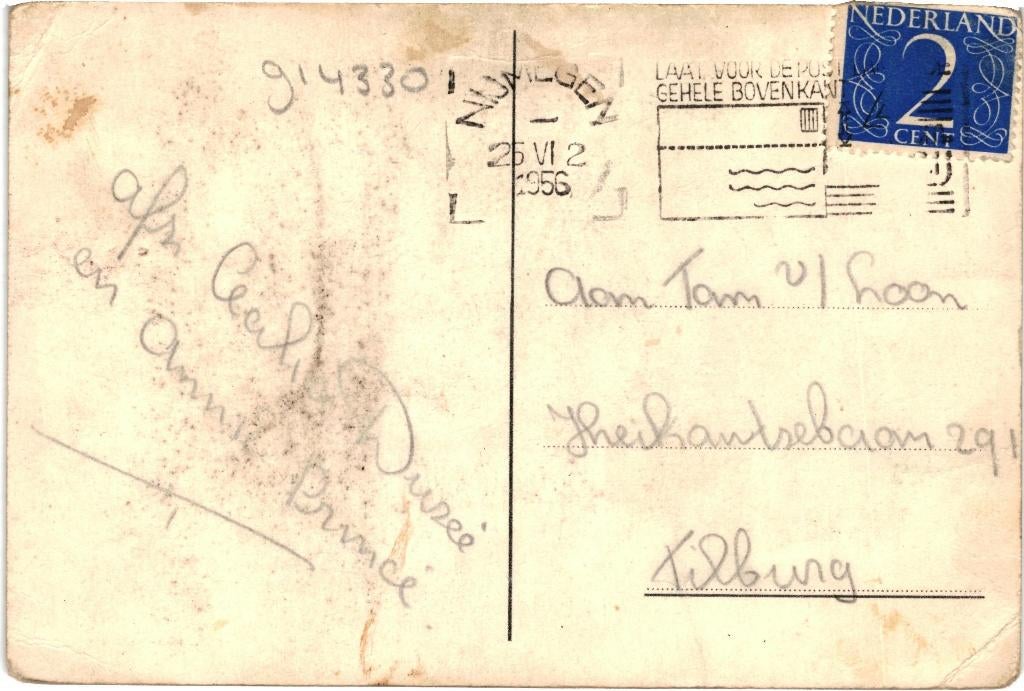 914330
NIJMEGEN
25 VI 2
1956
LAAT VOOR DE POST
GEHELE BOVENKANT
NEDERLAND
2
CENT
afz
en Annie Princé
Aan Tam v/ Loon
Heikantsebaan 291
Tilburg